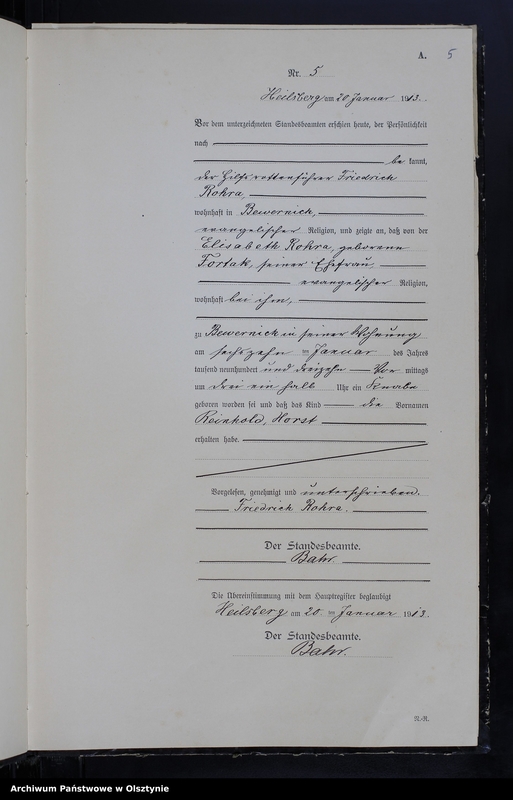 A. 5
Nr. 5
Heilsberg am 20 Januar 1913.
Vor dem unterzeichneten Standesbeamten erschien heute, der Persönlichkeit
nach
be kannt,
der Hilfsrottenführer Friedrich
Rohra,
wohnhaft in Bewernick,
evangelischer Religion, und zeigte an, daß von der
Elisabeth Rohra, geborene
Fortak, seiner Ehefrau,
evangelischer Religion,
wohnhaft bei ihm,
zu Bewernick in seiner Wohnung
am sechszehn ten Januar des Jahres
tausend neunhundert und dreizehn Vor mittags
um drei ein halb Uhr ein Knabe
geboren worden sei und daß das Kind die Vornamen
Reinhold, Horst
erhalten habe.
Vorgelesen, genehmigt und unterschrieben.
Friedrich Rohra.
Der Standesbeamte.
Bahr.
Die Übereinstimmung mit dem Hauptregister beglaubigt
Heilsberg am 20 ten Januar 1913.
Der Standesbeamte.
Bahr.
N.-R.
Archiwum Państwowe w Olsztynie